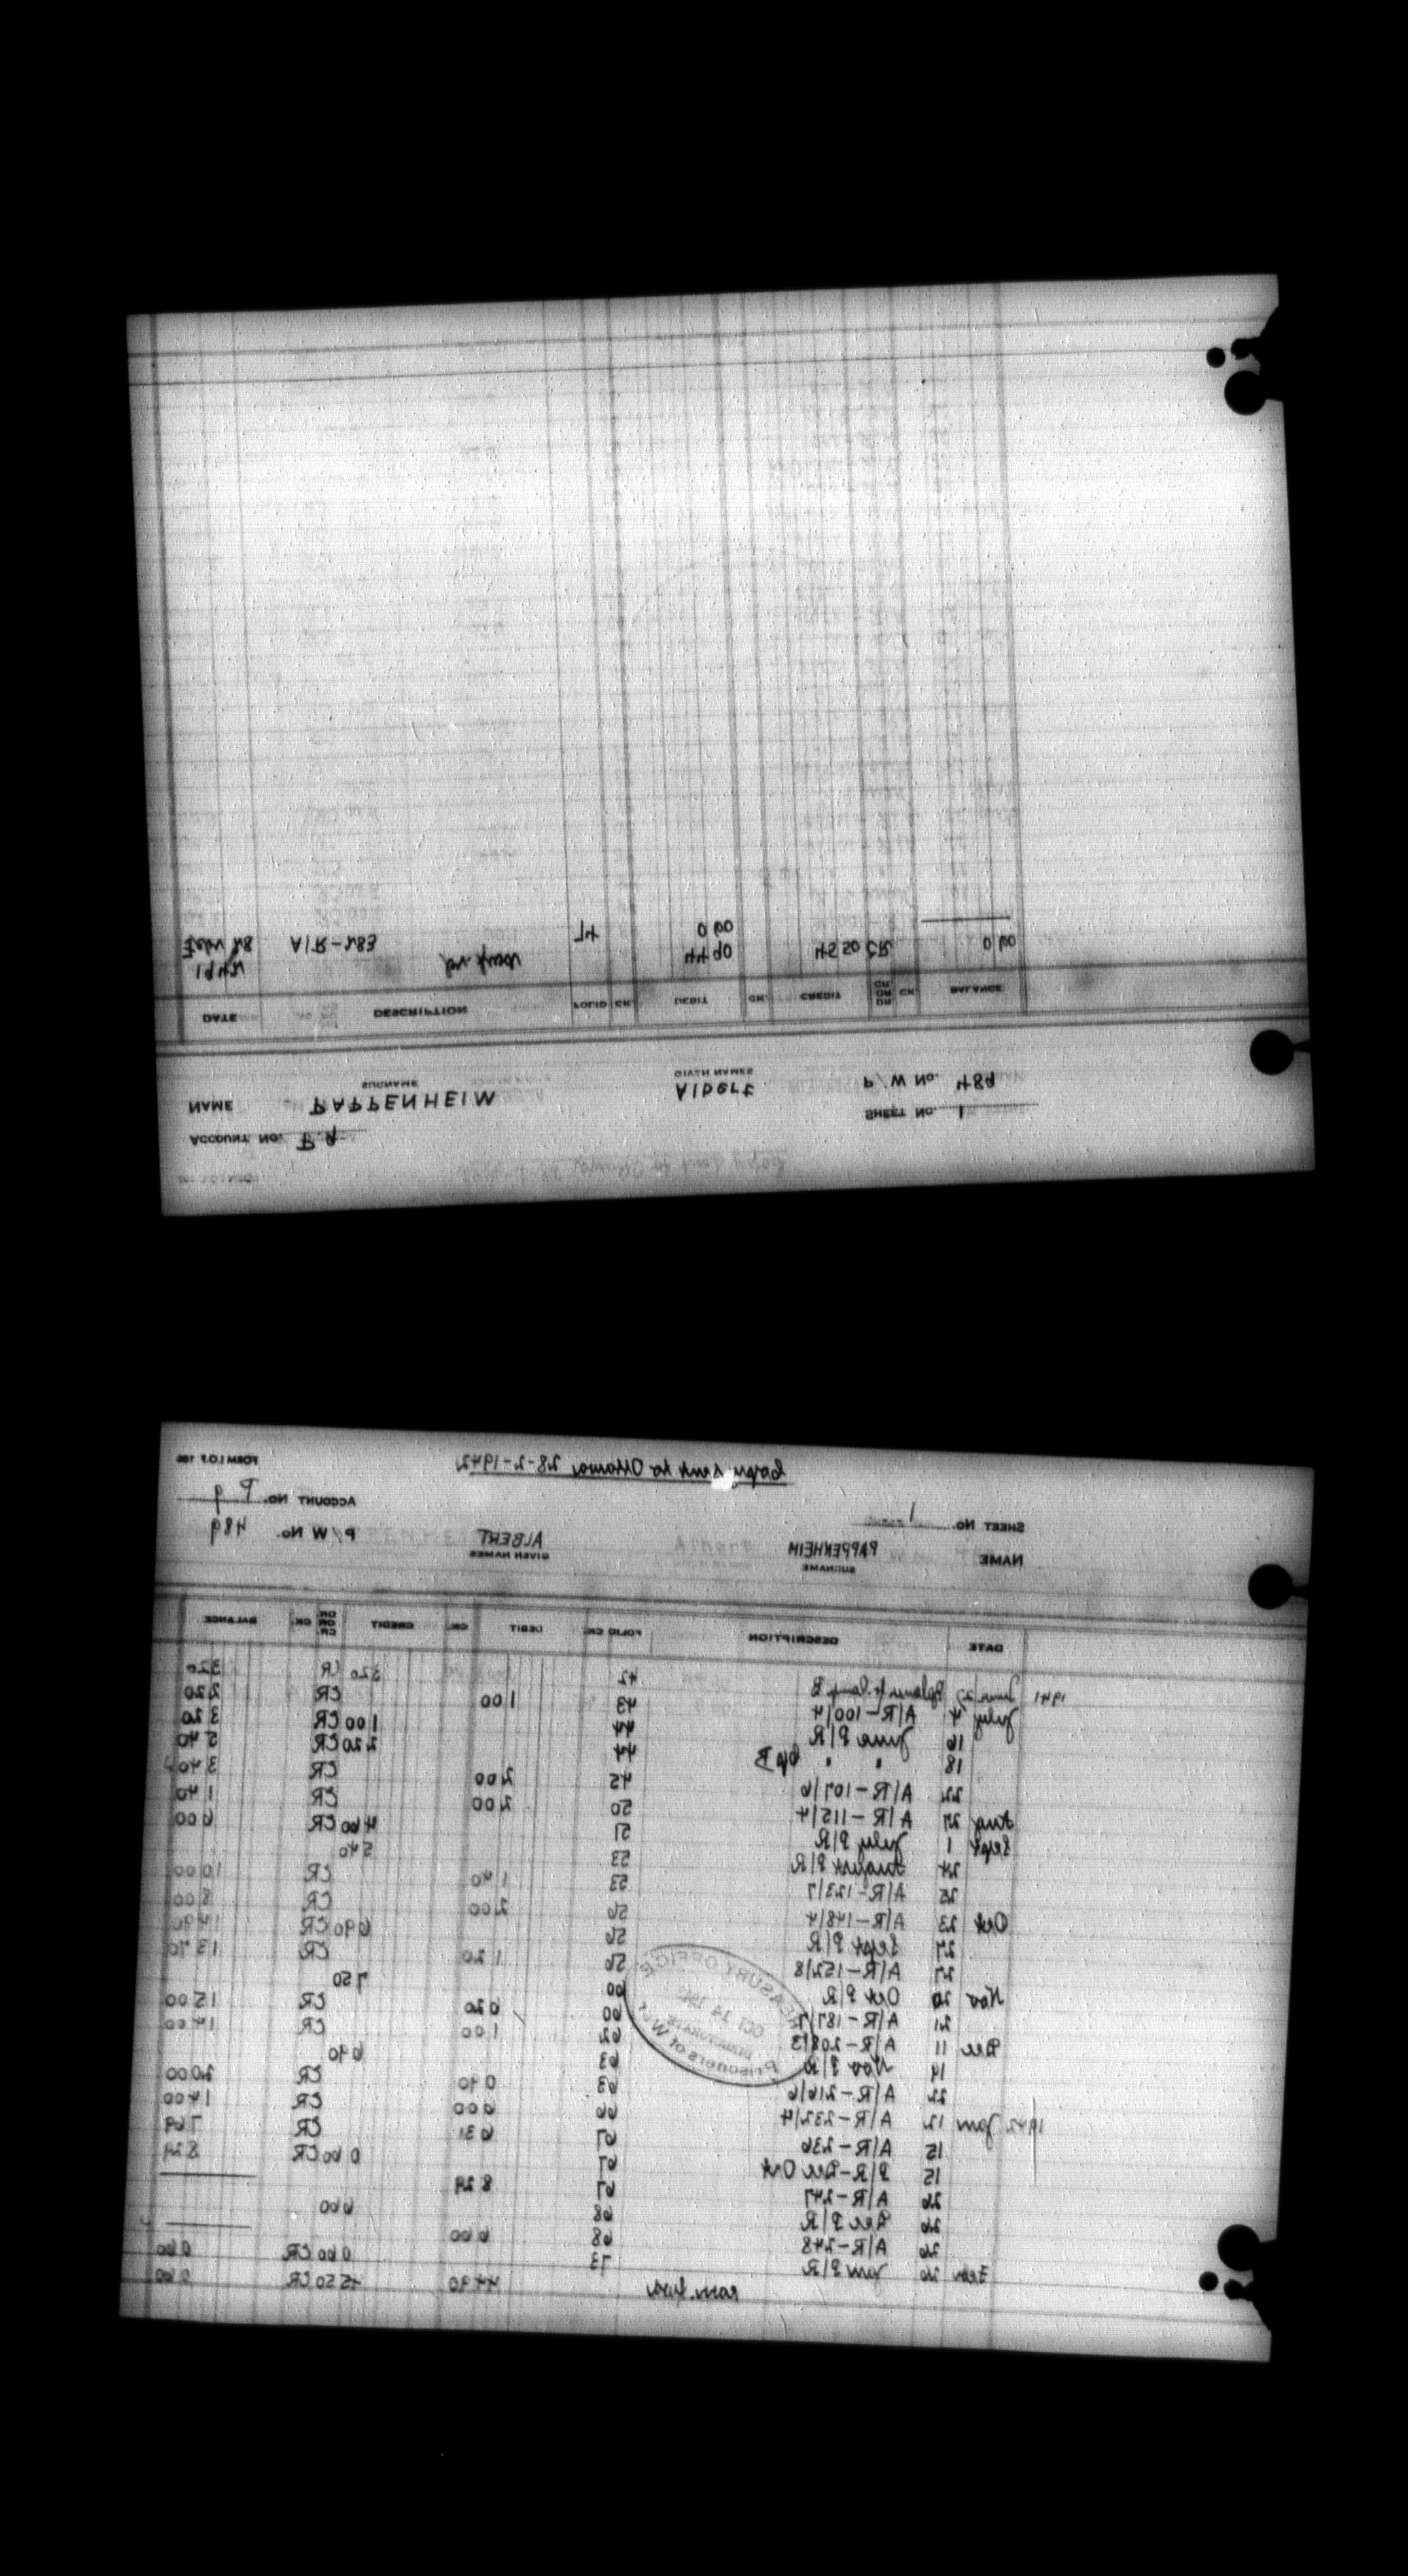 ACCOUNT NO. P.9
SHEET NO. 1
NAME PAPPENHEIM Albert P/W No. 489
SURNAME GIVEN NAMES
DATE DESCRIPTION FOLIO CK. DEBIT CK. CREDIT CR OR DR CK. BALANCE
1942 44 90 45 50 CR 0 60
Febr 28 A/R-283 74 0 60
FORM I.O.P. 106
Copy sent to Ottawa 28-2-1942
SHEET NO. 1 ACCOUNT NO. P 9
NAME PAPPENHEIM ALBERT P/W No. 489
SURNAME GIVEN NAMES
DATE DESCRIPTION FOLIO CK. DEBIT CK. CREDIT DR OR CR CK. BALANCE
1941 June 27 Balance fr. Camp B 42 3 20 CR 3 20
July 4 A/R-100/4 43 1 00 CR 2 20
16 June P/R 44 1 00 CR 3 20
18 " " Cp B 44 2 20 CR 5 40
22 A/R-107/6 45 2 00 CR 3 40
Aug 27 A/R-115/4 50 2 00 CR 1 40
Sept 1 July P/R 51 4 60 CR 6 00
24 August P/R 53 5 40
25 A/R-123/7 53 1 40 CR 10 00
Oct 23 A/R-148/4 56 2 00 CR 8 00
27 Sept P/R 56 6 90 CR 14 90
27 A/R-152/8 56 1 20 CR 13 70
Nov 20 Oct P/R 60 7 50
21 A/R-187/7 60 6 20 CR 15 00
Dec 11 A/R-208/3 62 1 00 CR 14 00
19 Nov P/R 63 6 90
22 A/R-216/6 63 0 90 CR 20 00
1942 Jan 12 A/R-232/4 66 6 00 CR 14 00
15 A/R-236 67 6 31 CR 7 69
15 P/R-Dec Oct 67 0 60 CR 8 29
26 A/R-247 67 8 29
26 Dec P/R 68 6 60
26 A/R-248 68 6 60
Febr 26 Jan P/R 73 0 60 CR 0 60
carr. forw. 44 90 45 50 CR 0 60
TREASURY OFFICE
OCT 14
DIRECTORATE
Prisoners of W